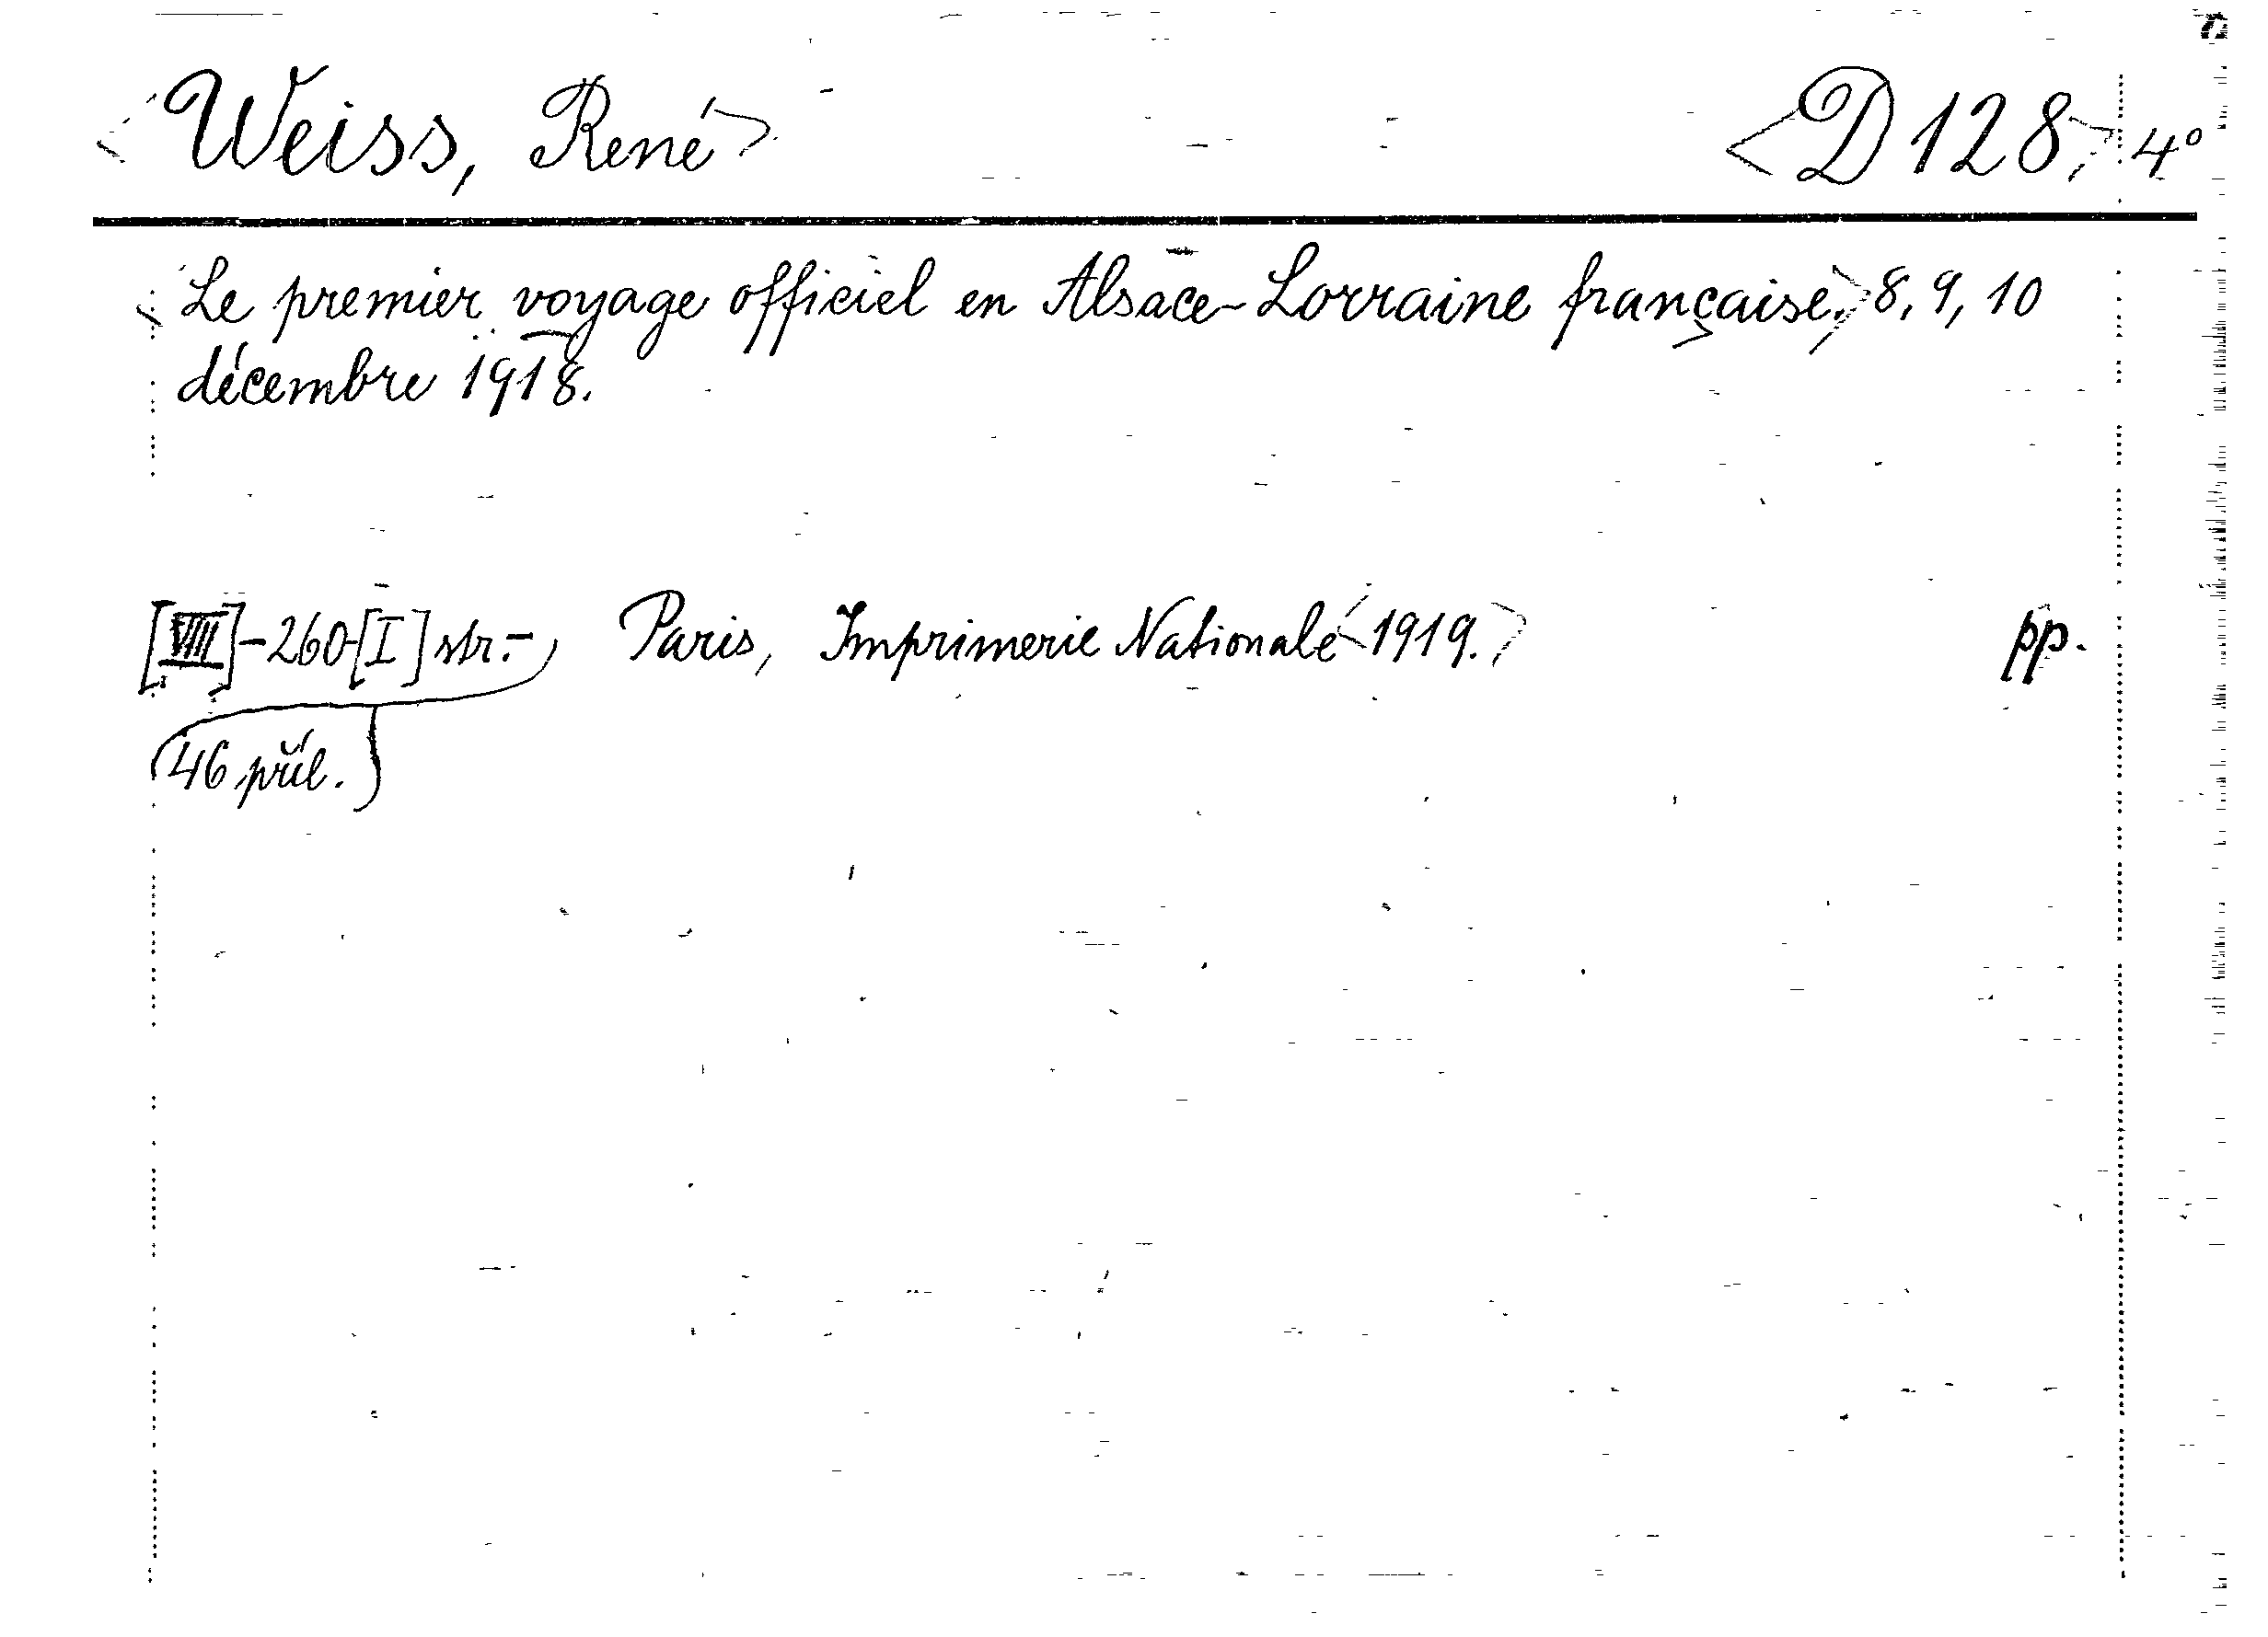 <Weiss, René> <D 128> 4°
<Le premier voyage officiel en Alsace-Lorraine française.> 8, 9, 10
décembre 1918.
[VIII]-260-[I] str.- Paris, Imprimerie Nationale <1919.> pp.
46 příl.)